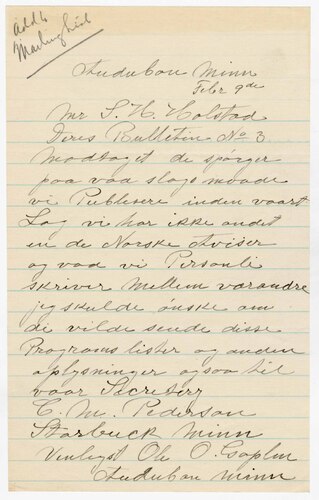 add to
Mailing list
Audubon Minn
Febr 9de
Mr S. H. Holstad
Deres Bulletin No 3
modtaget de spørger
paa vad slags maade
vi Publisere inden vaart
Lag vi har ikke andet
en de Norske Aviser
og vad vi Personli
skriver Mellem varandre
jeg skulde ønske om
de vilde sende disse
Programs lister og anden
oplysninger ogsaa til
vaar Secretery
C. M. Pederson
Starbuck Minn
Venligst Ole O.
Audubon Minn